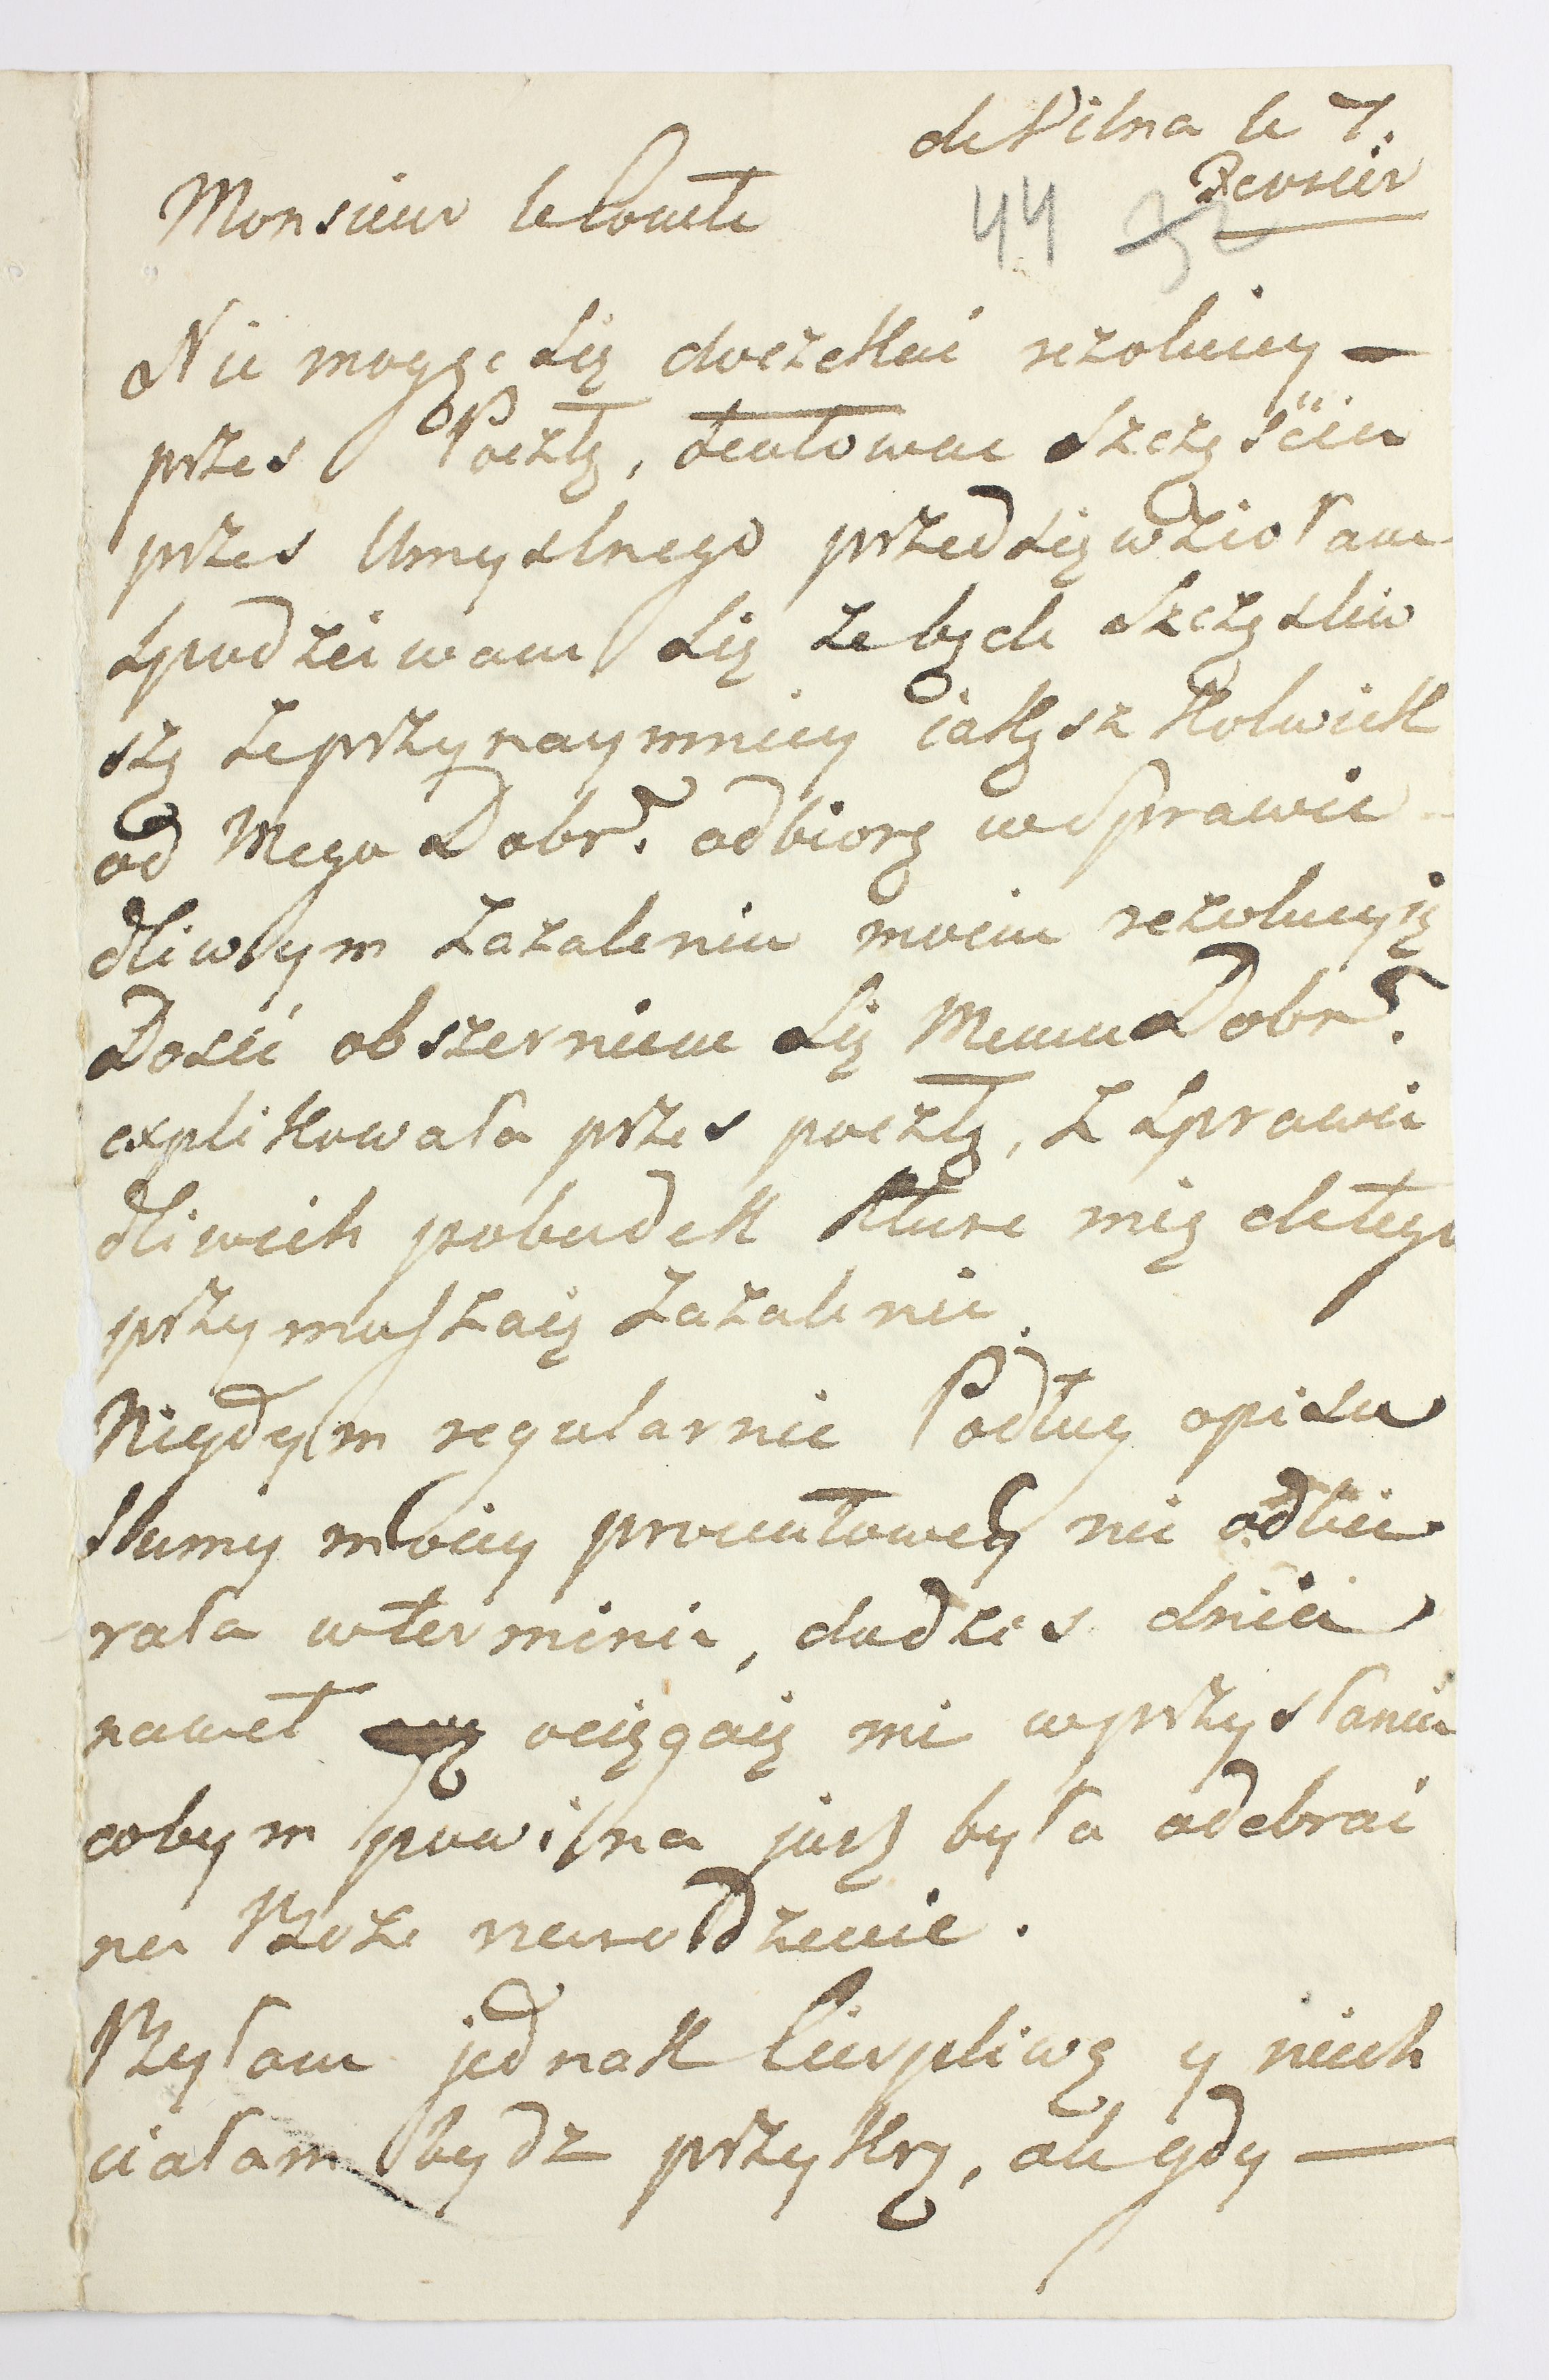 de Vilna le 7.
Fevrier
Monsieur le Comte
44 32
Nie mogąc się doczekać rezolucyi —
przes Pocztę, tentowac szczęścia
przes Umyslnego przedsięwziołam
spodziewam się ze będe szczęsliw
szą ze przynaymniey iakąsz kolwiek
od Mego Dobr: odbiorę w Sprawie
dliwym zazaleniu moim rezolucyją
Dosić obszerniem się Memu Dobr:
explikowała przes pocztę, z sprawie
dliwich pobudek kture mię do tego
przymuszaią zazalenia.
Nigdym regularnie Podług opisu
Summy moiey procentowey nie odbie
rała w terminie, do dzis dnia
nawet ociągaią mi w przysłaniu
cobym powinna jusz była odebrać
na Boże narodzenie.
Byłam jednak Cierpliwą y niech
ciałam bydz przykrą, ale gdy —